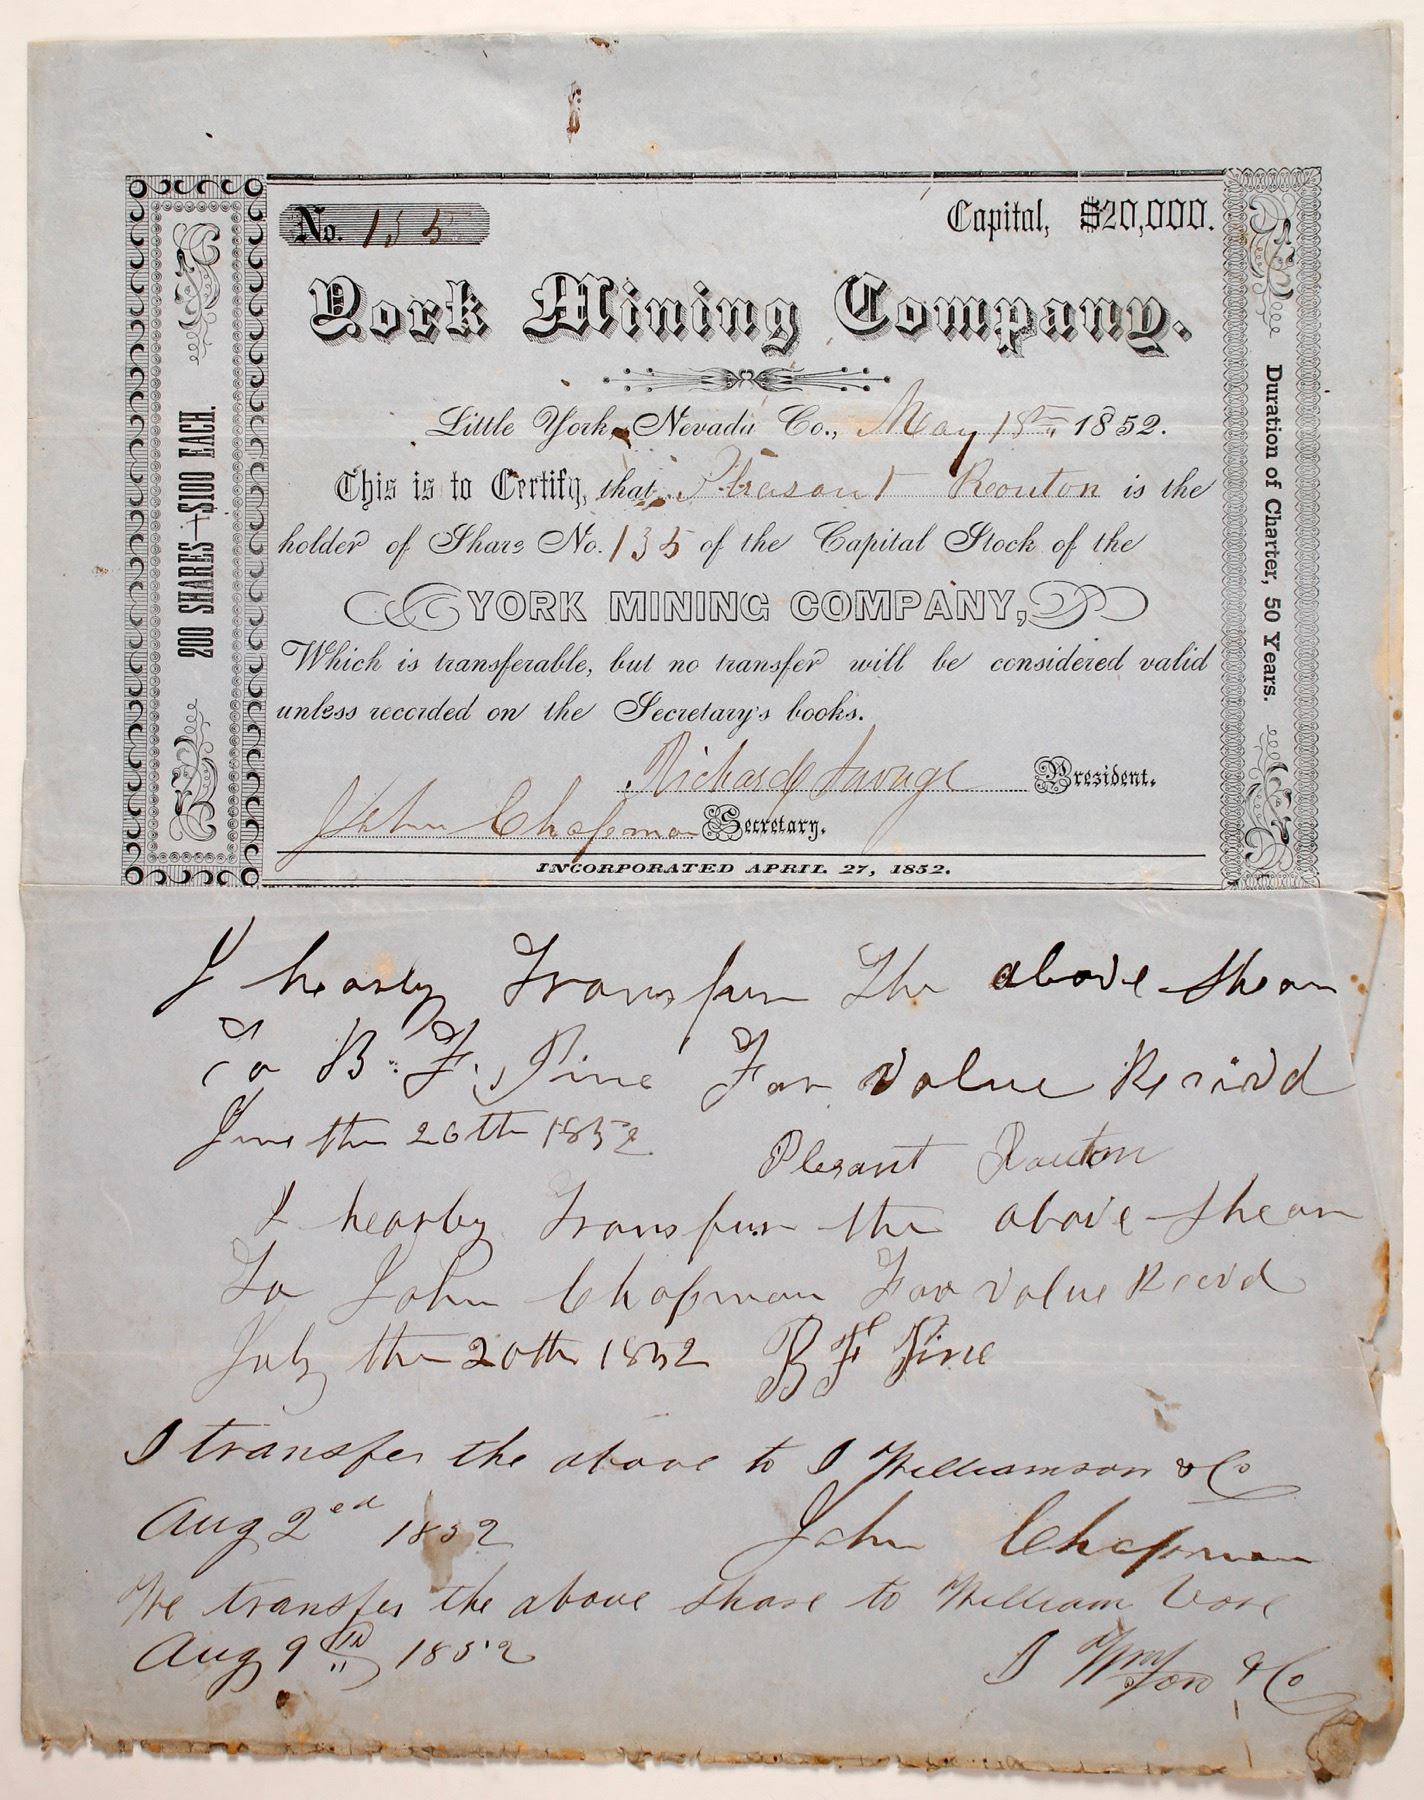 No. 135
Capital, $20,000.
York Mining Company.
Little York, Nevada Co., May 18th 1852.
This is to Certify, that Pleasant Routon is the
holder of Share No. 135 of the Capital Stock of the
YORK MINING COMPANY,
Which is transferable, but no transfer will be considered valid
unless recorded on the Secretary's books.
Richard Savage President.
John Chapman Secretary.
INCORPORATED APRIL 27, 1852.
200 SHARES—$100 EACH.
Duration of Charter, 50 Years.
I hearby Transfur the above shear
To B. F. Pine For value Recivd
June the 26th 1852
Plesant Routon
I hearby Transfur the above shear
To John Chapman For value Recivd
July the 20th 1852 B F Pine
I transfer the above to J Williamson & Co
Aug 2ed 1852 John Chapman
We transfer the above share to William Vose
Aug 9th 1852
J Wmson & Co